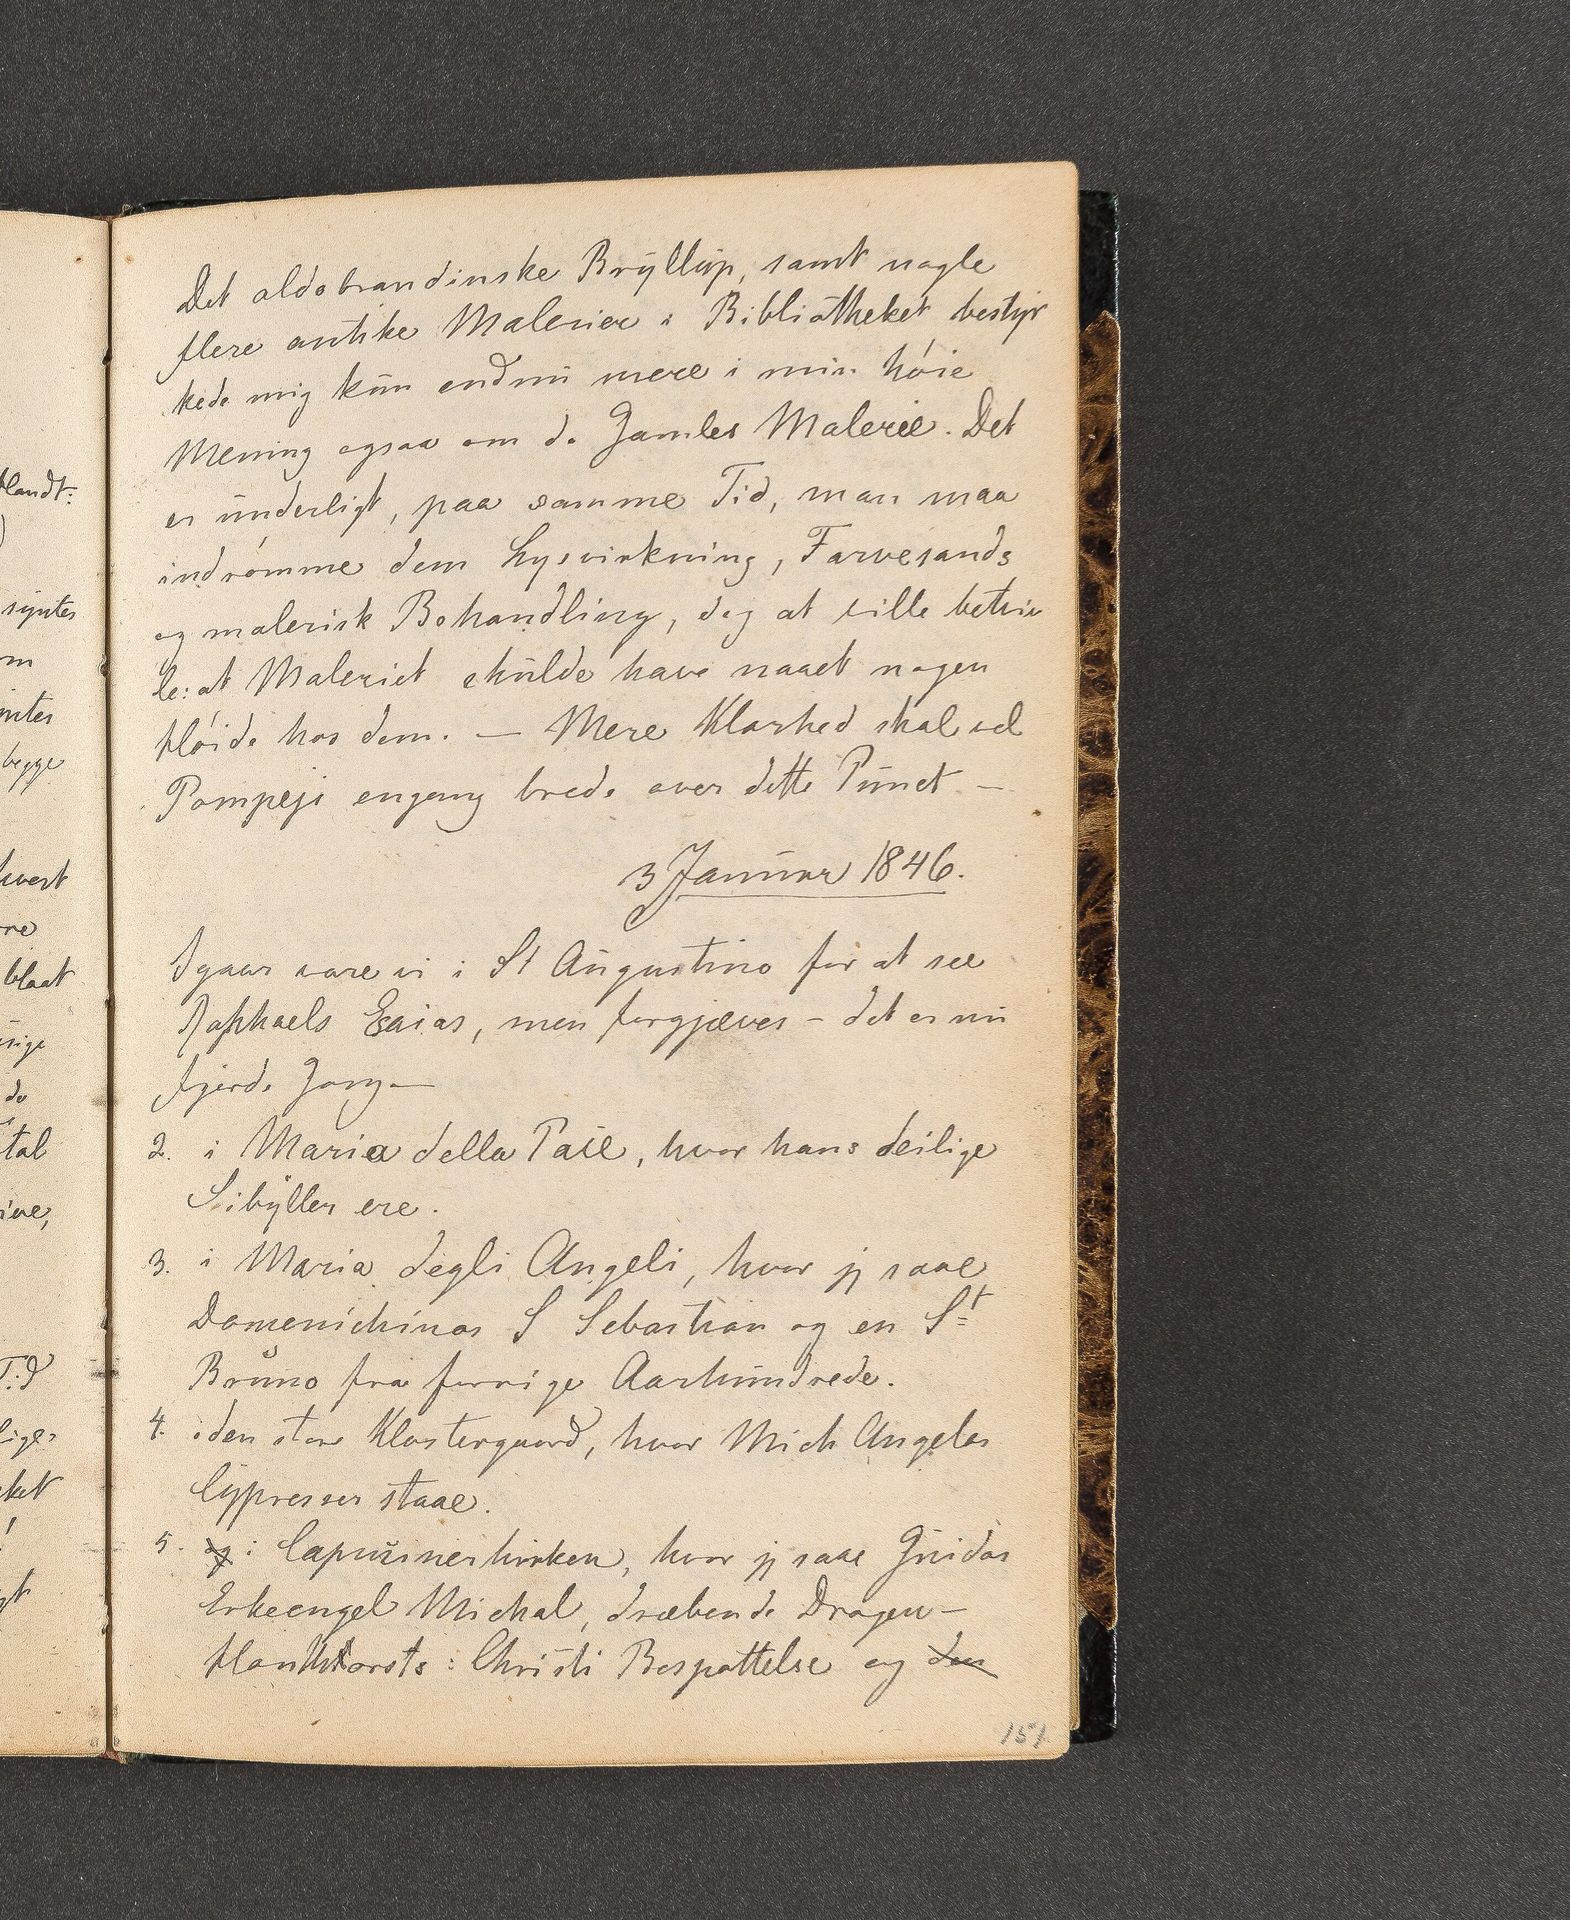 Det aldobrandinske Bryllup, samt nogle
flere antike Malerier i Bibliotheket bestyr
kede mig kun endnu mere i min høie
Mening ogsaa om de Gamles Malerie. Det
er underligt, paa samme Tid, man maa
indrømme dem Lysvirkning, Farvesands
og malerisk Behandling, dog at ville betviv
le: at Maleriet skulde have naaet nogen
Høide hos dem. — Mere Klarhed skal vel
Pompeji engang brede over dette Punct —
3 Januar 1846.
Igaar vare vi i St Augustino for at see
Raphaels Esaias, men forgjæves – det er nu
fjerde Gang —
2. i Maria della Pace, hvor hans deilige
Sibyller ere.
3. i Maria degli Angeli, hvor jg saae
Domenichinos S Sebastian og en St
Bruno fra forrige Aarhundrede.
4. i den store Klostergaard, hvor Mich Angelos
Cypresser staae.
5. og i Capusinerkirken, hvor jg saae Guidos
Erkeengel Michal, dræbende Dragen –
Honthorsts: Christi Bespottelse og den
151
landt:
syntes
om
begge
hvert
blaat
de
tal
Tid